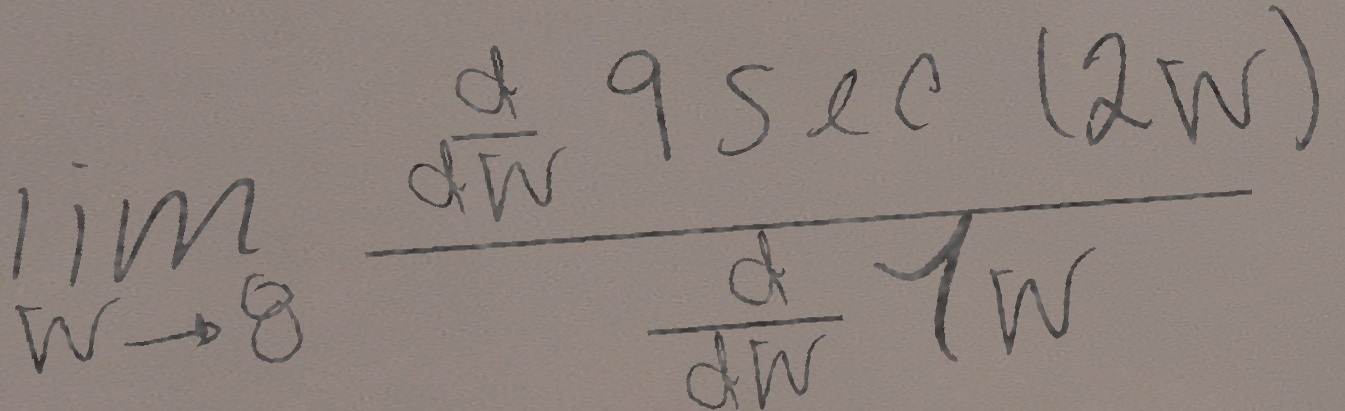 \lim_{w \to 8} \frac{\frac{d}{dw} 9 \sec (2w)}{\frac{d}{dw} 1w}